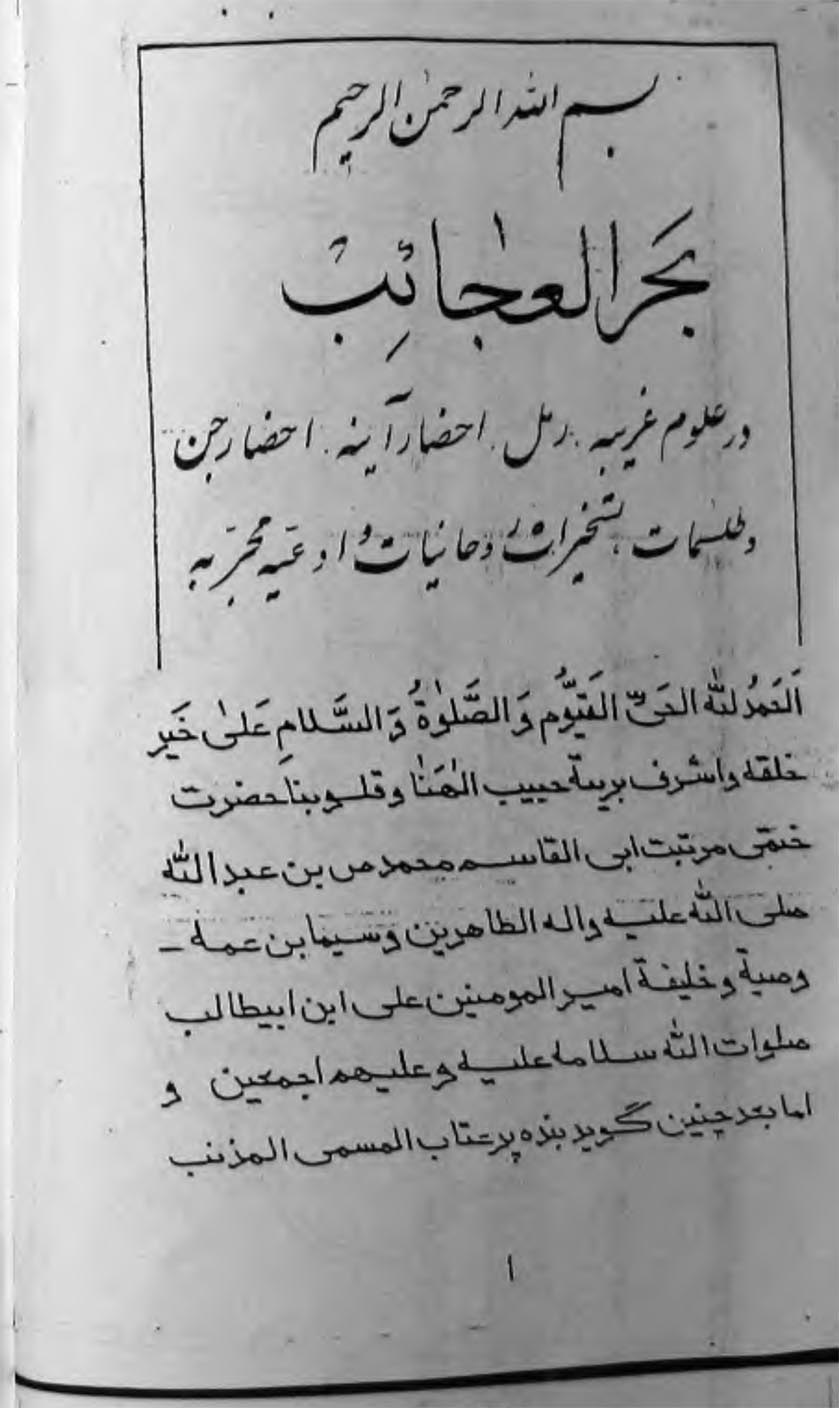 بسم الله الرحمن الرحیم
بحر العجائب
در علوم غریبه . رمل . احضار آینه . احضار جن
و طلسمات ، تسخیرات روحانیات و ادعیه مجربه
اَلحَمدُ لله الحَیّ القَیُّوم وَ الصَّلوٰةُ وَ السَّلامِ عَلیٰ خَیر
خلقه و اشرف بریة حبیب الٰهَنٰا و قلوبنا حضرت
ختمی مرتبت ابی القاسم محمد ص بن عبد الله
صلی الله علیه واله الطاهرین وسیما بن عمه -
وصیة و خلیفة امیر المومنین علی ابن ابیطالب
صلوات الله سلامه علیه و علیهم اجمعین و
اما بعد چنین گوید بنده پر عتاب المسمی المذنب
۱